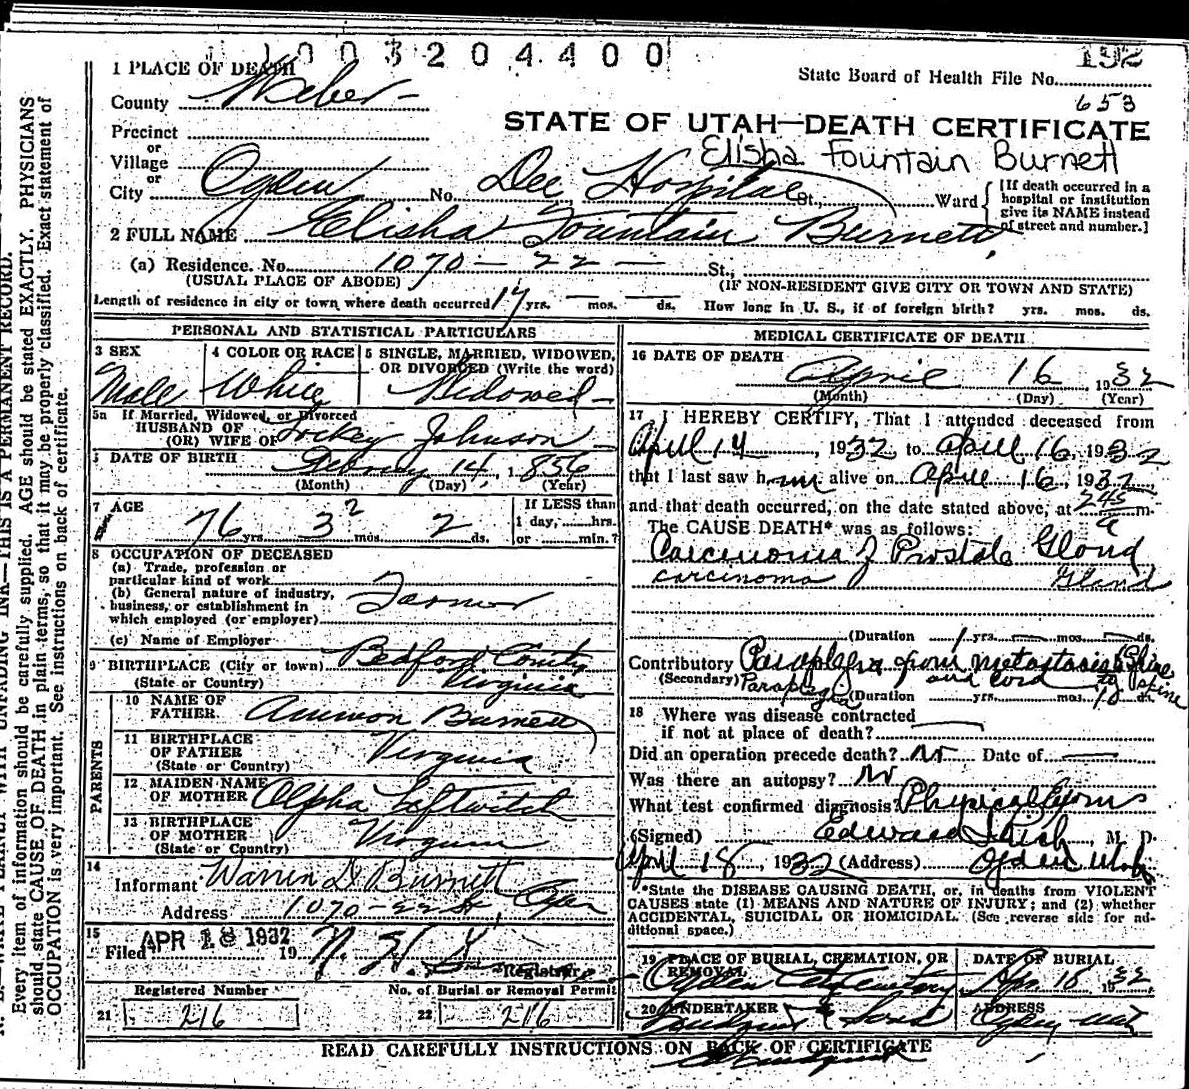 1003204400
192
1 PLACE OF DEATH
State Board of Health File No.
County Weber
653
Precinct
STATE OF UTAH—DEATH CERTIFICATE
or
Elisha Fountain Burnett
Village
or
City Ogden No. Dee Hospital St., Ward
[If death occurred in a hospital or institution give its NAME instead of street and number.]
2 FULL NAME Elisha Fountain Burnett
(a) Residence. No. 1070 - 22 — St.,
(USUAL PLACE OF ABODE) (IF NON-RESIDENT GIVE CITY OR TOWN AND STATE)
Length of residence in city or town where death occurred 17 yrs. — mos. — ds. How long in U. S., if of foreign birth? yrs. mos. ds.
PERSONAL AND STATISTICAL PARTICULARS
3 SEX Male
4 COLOR OR RACE White
5 SINGLE, MARRIED, WIDOWED, OR DIVORCED (Write the word) Widowed
5a If Married, Widowed, or Divorced
HUSBAND OF
(OR) WIFE OF Johnson
DATE OF BIRTH 14, 1856
(Month) (Day) (Year)
7 AGE 76 yrs. 3 2 mos. 2 ds.
If LESS than
1 day, hrs.
or min.?
8 OCCUPATION OF DECEASED
(a) Trade, profession or
particular kind of work
(b) General nature of industry,
business, or establishment in
which employed (or employer) Farmer
(c) Name of Employer
9 BIRTHPLACE (City or town) Bedford County
(State or Country) Virginia
PARENTS
10 NAME OF
FATHER Burnett
11 BIRTHPLACE
OF FATHER Virginia
(State or Country)
12 MAIDEN NAME
OF MOTHER Alpha Leftwitch
13 BIRTHPLACE
OF MOTHER Virginia
(State or Country)
14
Informant Warren D Burnett
Address 1070-22 St, Ogden
15
Filed APR 18 1932 19 Registrar
Registered Number No. of Burial or Removal Permit
21 216 22 216
MEDICAL CERTIFICATE OF DEATH
16 DATE OF DEATH
April 16 1932
(Month) (Day) (Year)
17 I HEREBY CERTIFY, That I attended deceased from
April 14, 1932 to April 16, 1932
that I last saw him alive on April 16, 1932,
and that death occurred, on the date stated above, at 245 a m.
The CAUSE DEATH* was as follows:
Carcinoma of Prostate Gland
carcinoma Gland
(Duration 1 yrs. — mos. — ds.
Contributory Paraplegia from metastases to Spine
(Secondary) Paraplegia and cord to spine
(Duration yrs. mos. 10 ds.
18 Where was disease contracted
if not at place of death?
Did an operation precede death? No Date of
Was there an autopsy? No
What test confirmed diagnosis? Physical Exam
(Signed) Edward M. D.
April 18, 1932 (Address) Ogden Utah
*State the DISEASE CAUSING DEATH, or, in deaths from VIOLENT
CAUSES state (1) MEANS AND NATURE OF INJURY; and (2) whether
ACCIDENTAL, SUICIDAL OR HOMICIDAL. (See reverse side for additional space.)
19 PLACE OF BURIAL, CREMATION, OR REMOVAL Ogden City Cemetery
DATE OF BURIAL Apr 18 1932
20 UNDERTAKER & Sons
ADDRESS Ogden Utah
READ CAREFULLY INSTRUCTIONS ON BACK OF CERTIFICATE
N. B.—WRITE PLAINLY WITH UNFADING INK—THIS IS A PERMANENT RECORD.
Every item of information should be carefully supplied. AGE should be stated EXACTLY. PHYSICIANS
should state CAUSE OF DEATH in plain terms, so that it may be properly classified. Exact statement of
OCCUPATION is very important. See instructions on back of certificate.